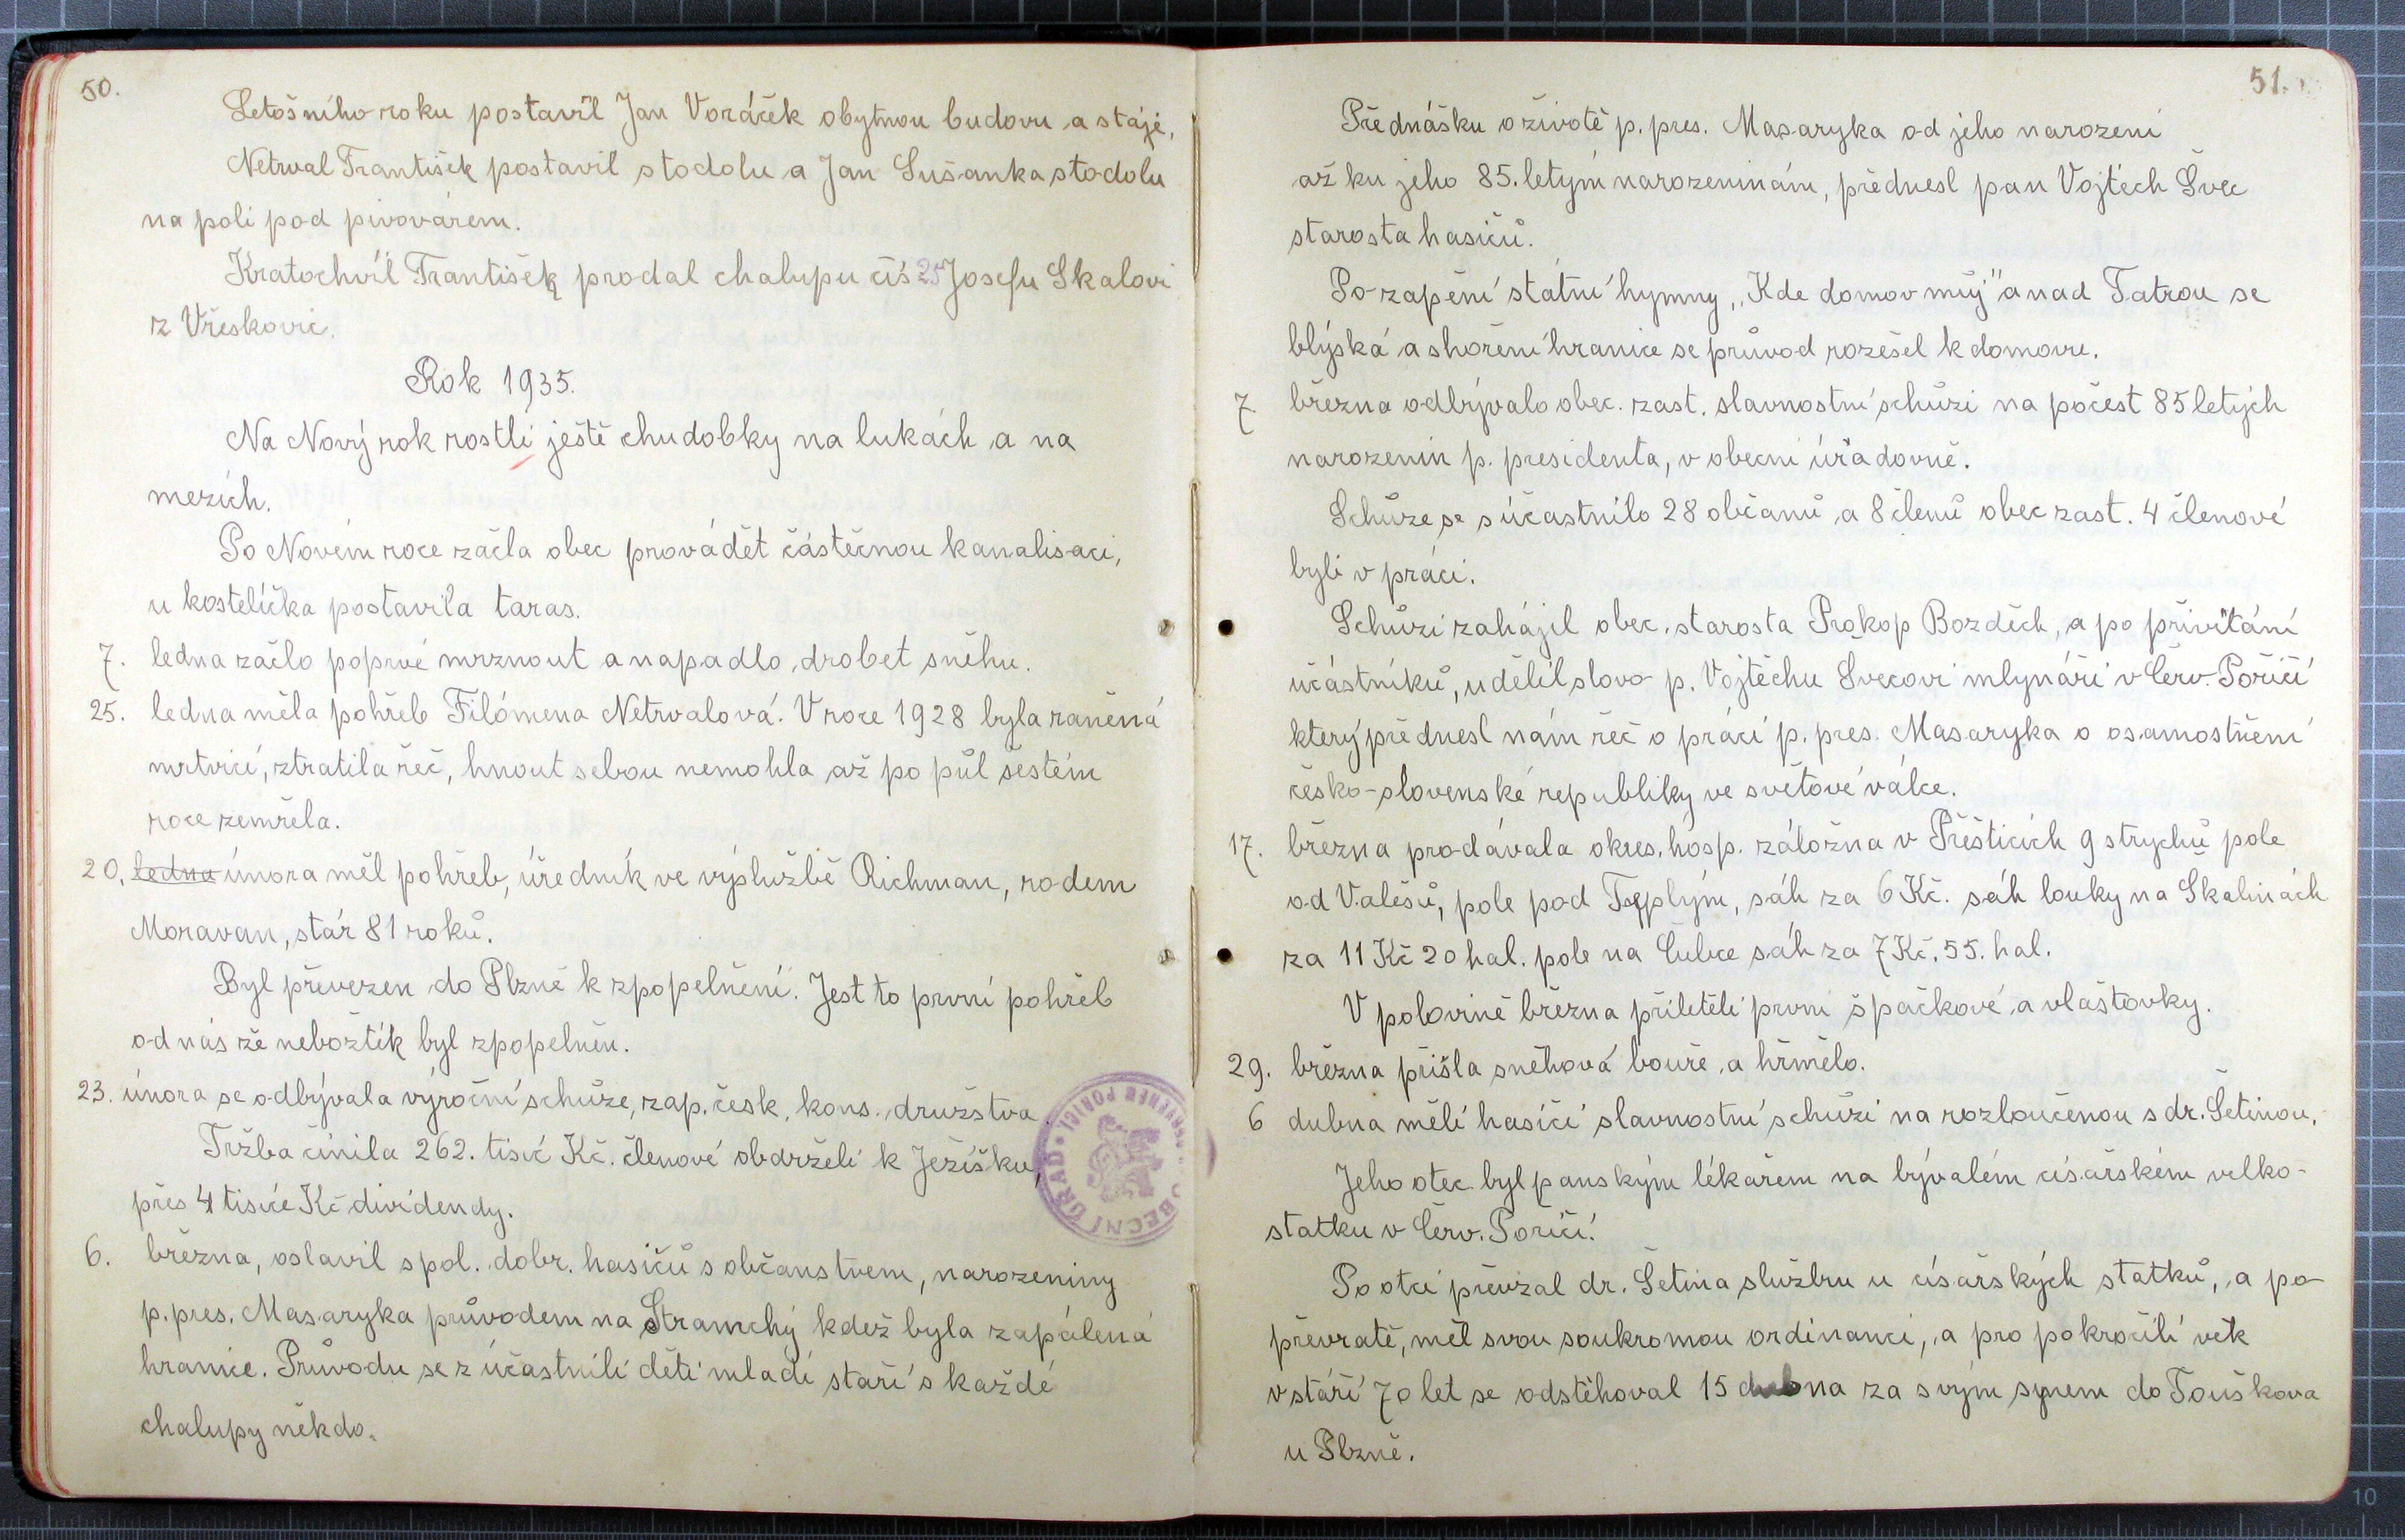 50.
Letošního roku postavil Jan Voráček obytnou budovu a stáje,
Netrval František postavil stodolu a Jan Sušanka stodolu
na poli pod pivovárem.
Kratochvíl František prodal chalupu čís 25 Josefu Skalovi
z Vřeskovic.
Rok 1935.
Na Nový rok rostli ještě chudobky na lukách a na
mezích.
Po Novém roce začla obec provádět částěčnou kanalisaci,
u kostelíčka postavila taras.
7. ledna začlo poprvé mrznout a napadlo drobet sněhu.
25. ledna měla pohřeb Filómena Netrvalová. V roce 1928 byla raněná
mrtvicí, ztratila řeč, hnout sebou nemohla až po půl šestém
roce zemřela.
20. ledna února měl pohřeb, úředník ve výslužbě Richman, rodem
Moravan, stár 81 roků.
Byl převezen do Plzně k zpopelnění. Jest to první pohřeb
od nás že nebožtík byl zpopelněn.
23. února se odbývala výroční schůze, zap. česk. kons. družstva.
Tržba činila 262. tisíc Kč. členové obdrželi k Ježíšku,
přes 4 tisíce Kč dividendy.
6. března, oslavil spol. dobr. hasičů s občanstvem, narozeniny
p. pres. Masaryka průvodem na Stramchý kdež byla zapálená
hranice. Průvodu se z účastnili děti mladí staří s každé
chalupy někdo.
OBECNÍ ÚŘAD
51.
Přednášku o životě p. pres. Masaryka od jeho narození
až ku jeho 85. letým narozeninám, přednesl pan Vojtěch Švec
starosta hasičů.
Po zapění státní hymny „Kde domov můj" a nad Tatrou se
blýská a shoření hranice se průvod rozešel k domovu.
7. března odbývalo obec. zast. slavnostní schůzi na počest 85 letých
narozenin p. presidenta, v obecní úřadovně.
Schůze se súčastnilo 28 občanů a 8 členů obec zast. 4 členové
byli v práci.
Schůzi zahájil obec. starosta Prokop Bozděch, a po přivítání
účástníků, udělil slovo p. Vojtěchu Švecovi mlynáři v Červ. Poříčí
který přednesl nám řeč o práci p. pres. Masaryka o osamostnění
česko-slovenské republiky ve světové válce.
17. března prodávala okres. hosp. záložna v Přešticích 9 strychů pole
od Valešů, pole pod Teplým, sáh za 6 Kč. sáh louky na Skalinách
za 11 Kč 20 hal. pole na Čubce sáh za 7 Kč. 55. hal.
V polovině března přiletěli první špačkové a vlaštovky.
29. března přišla sněhová bouře a hřmělo.
6 dubna měli hasiči slavnostní schůzi na rozloučenou s dr. Šetinou.
Jeho otec byl panským lékařem na bývalém císařském velko-
statku v Červ. Poříčí.
Po otci převzal dr. Šetina službu u císařských statků, a po
převratě, měl svou soukromou ordinanci, a pro pokročilí věk
v stáří 70 let se odstěhoval 15 dubna za svým synem do Touškova
u Plzně.
10